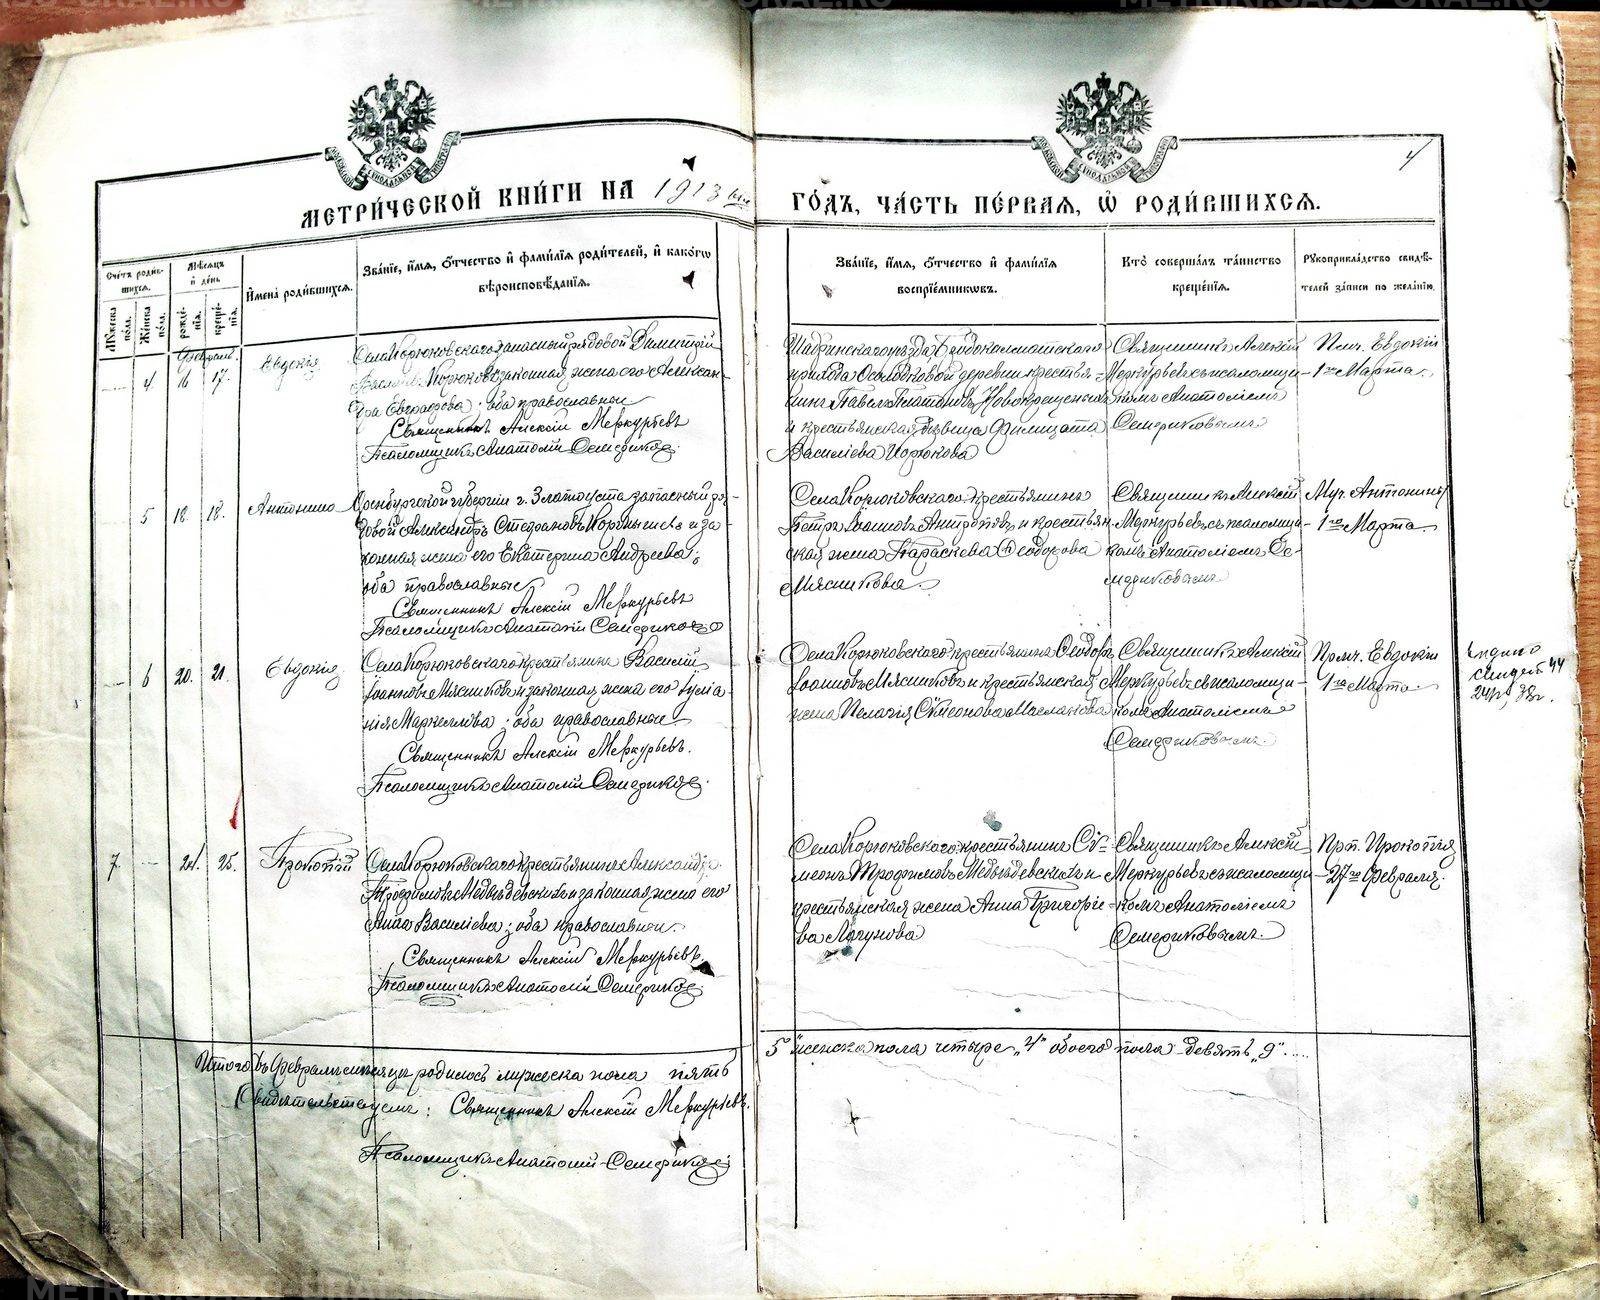 METRIKI.GASO-URAL.RU
МОСКОВСКОЙ СѴНОДАЛЬНОЙ ТИПОГРАФІИ
МОСКОВСКОЙ СѴНОДАЛЬНОЙ ТИПОГРАФІИ
4
МЕТРИ́ЧЕСКОЙ КНИ́ГИ НА 1913 ый ГО́ДЪ, ЧА́СТЬ ПЕ́РВАЯ, Ѡ҆ РОДИ́ВШИХСѦ.
Сче́тъ роди́в-
шихся.
Мꙋжеска по́ла.
Же́нска по́ла.
Мѣ́сяцъ
и҆ де́нь
рожде́-
нїя.
креще́-
нїя.
И҆мена̀ роди́вшихся.
Зва́нїе, и҆́мя, ѻ҆́тчество и҆ фами́лїя роди́телей, и҆ како́гѡ
вѣроисповѣ́данїя.
Зва́нїе, и҆́мя, ѻ҆́тчество и҆ фами́лїя
воспрїе́мникѡвъ.
Кто̀ соверша́лъ та́инство
креще́нїя.
Рꙋкоприкла́дство свидѣ́-
телей за́писи по жела́нїю.
Февраль.
4. 16 17. Евдокія
Села Корюковскаго запасный рядовой Димитрій
Васильевъ Корюковъ и законная жена его Алексан-
дра Евграфова; оба православные
Священникъ Алексій Меркурьевъ
Псаломщикъ Анатолій Семериковъ
Шадринскаго уѣзда
прихода деревни крестья-
нинъ Павелъ Платоновъ Новокрещеныхъ
и крестьянская дѣвица Филицата
Василіева Корюкова
Священникъ Алексій
Меркурьевъ съ псаломщи-
комъ Анатоліемъ
Семериковымъ
Прмч. Евдокіи
1го Марта.
5 18. 18. Антонина
Оренбургской губерніи г. Златоуста запасный ря-
довой Александръ Стефановъ и за-
конная жена его Екатерина Андреева;
оба православные
Священникъ Алексій Меркурьевъ
Псаломщикъ Анатолій Семериковъ
Села Корюковскаго крестьянинъ
Петръ Іоанновъ Антроповъ и крестьян-
ская жена Параскева Ѳеодорова
Мясникова.
Священникъ Алексій
Меркурьевъ съ псаломщи-
комъ Анатоліемъ Се-
мериковымъ
Муч. Антонины
1го Марта.
6 20. 21. Евдокія
Села Корюковскаго крестьянинъ Василій
Іоанновъ Мясниковъ и законная жена его Іуліа-
нія Маркеллова; оба православные.
Священникъ Алексій Меркурьевъ.
Псаломщикъ Анатолій Семериковъ.
Села Корюковскаго крестьянинъ Ѳеодоръ
Іоанновъ Мясниковъ и крестьянская
жена Пелагія Сѵмеонова Маслакова
Священникъ Алексій
Меркурьевъ съ псаломщи-
комъ Анатоліемъ
Семериковымъ.
Прмч. Евдокіи
1го Марта.
7. 24. 25. Прокопій
Села Корюковскаго крестьянинъ Александръ
Трофимовъ Медвѣдевскихъ и законная жена его
Анна Василіева; оба православные.
Священникъ Алексій Меркурьевъ.
Псаломщикъ Анатолій Семериковъ.
Села Корюковскаго крестьянинъ Сѵ-
меонъ Трофимовъ Медвѣдевскихъ и
крестьянская жена Анна Григорье-
ва Лагунова
Священникъ Алексій
Меркурьевъ съ псаломщи-
комъ Анатоліемъ
Семериковымъ.
Прп. Прокопія
27го Февраля.
Итого въ Февралѣ мѣсяцѣ родилось мужеска пола пять
5" женска пола четыре „4" обоего пола девять „9"....
Свидѣтельствуемъ: Священникъ Алексій Меркурьевъ.
Псаломщикъ Анатолій Семериковъ
METRIKI.GASO-URAL.RU